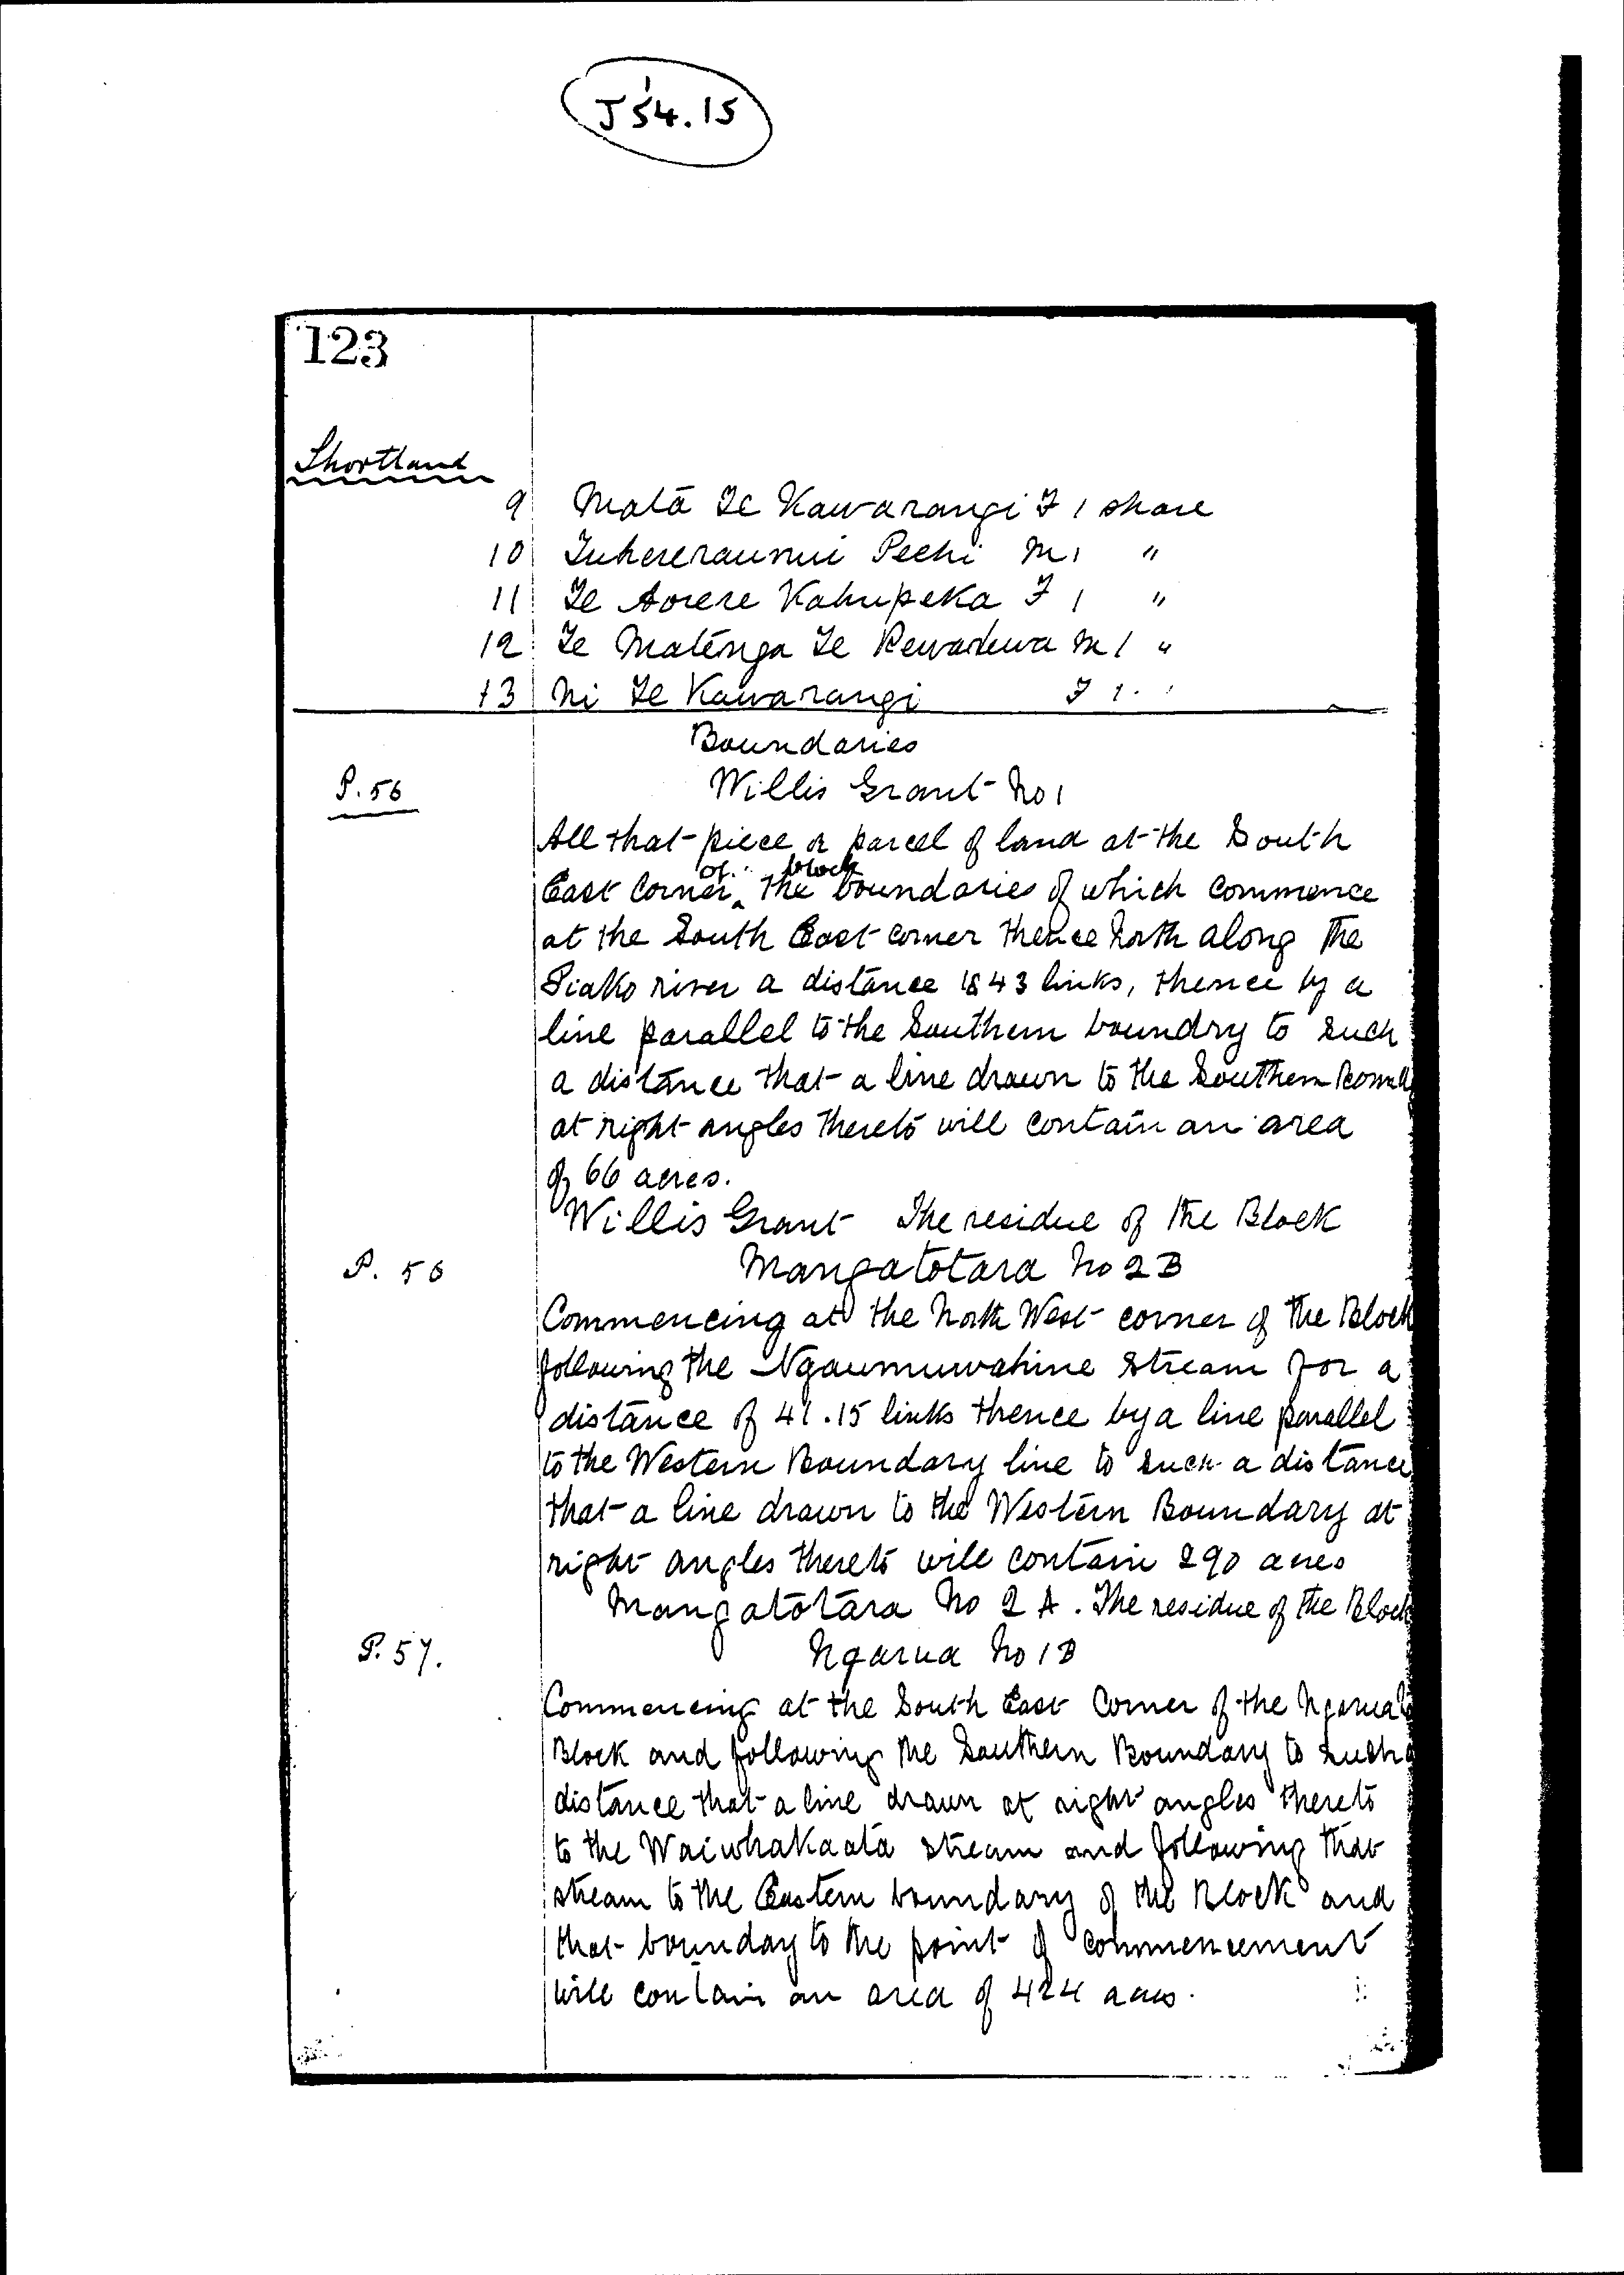 J54.15
123
Shortland
9 Mata Te Kawarangi F 1 share
10 Tuhereraunui Pechi M 1 "
11 Te Aorere Kahupeka F 1 "
12 Te Matenga Te M 1 "
13 Ni Te Kawarangi F 1 "
Boundaries
P. 56 Willis Grant No 1
All that piece or parcel of land at the South
of block
East Corner the boundaries of which commence
at the South East corner thence North along the
Piako river a distance 1843 links, thence by a
line parallel to the Southern boundry to such
a distance that a line drawn to the Southern
at right angles thereto will contain an area
of 66 acres.
Willis Grant The residue of the Block
P. 56 Mangatotara No 2 B
Commencing at the North West corner of the Block
following the Ngaumuwahine Stream for a
distance of 41.15 links thence by a line parallel
to the Western Boundary line to such a distance
that a line drawn to the Western Boundary at
right angles thereto will contain 290 acres
Mangatotara No 2 A. The residue of the Block
P. 57. Ngarua No 1 B
Commencing at the South East Corner of the Ngarua
Block and following the Southern Boundary to such a
distance that a line drawn at right angles thereto
to the Waiwhakaata stream and following that
stream to the Eastern boundary of the Block and
that bounday to the point of commencement
will contain an area of 424 acres.